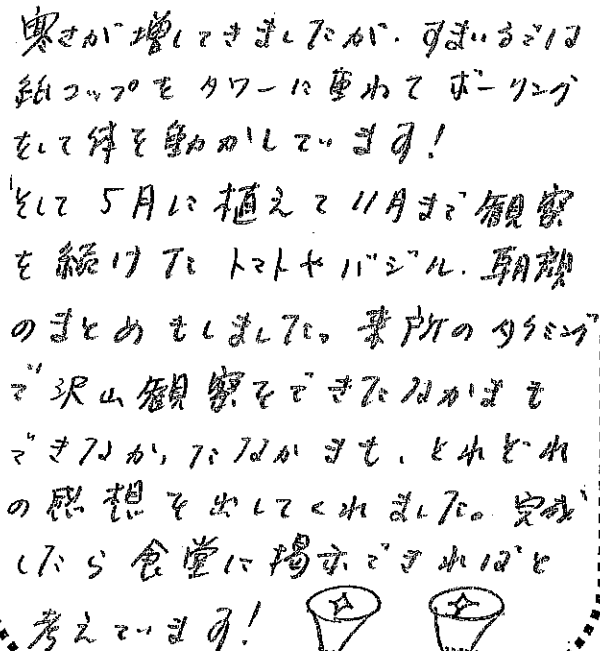 寒さが増してきましたが、すまいるでは
紙コップをタワーに重ねてボーリング
をして体を動かしています!
そして5月に植えて11月まで観察
を続けたトマトやバジル、朝顔
のまとめもしました。来所のタイミング
で沢山観察をできたなかまも
できなかったなかまも、それぞれ
の感想を出してくれました。完成
したら食堂に掲示できればと
考えています!